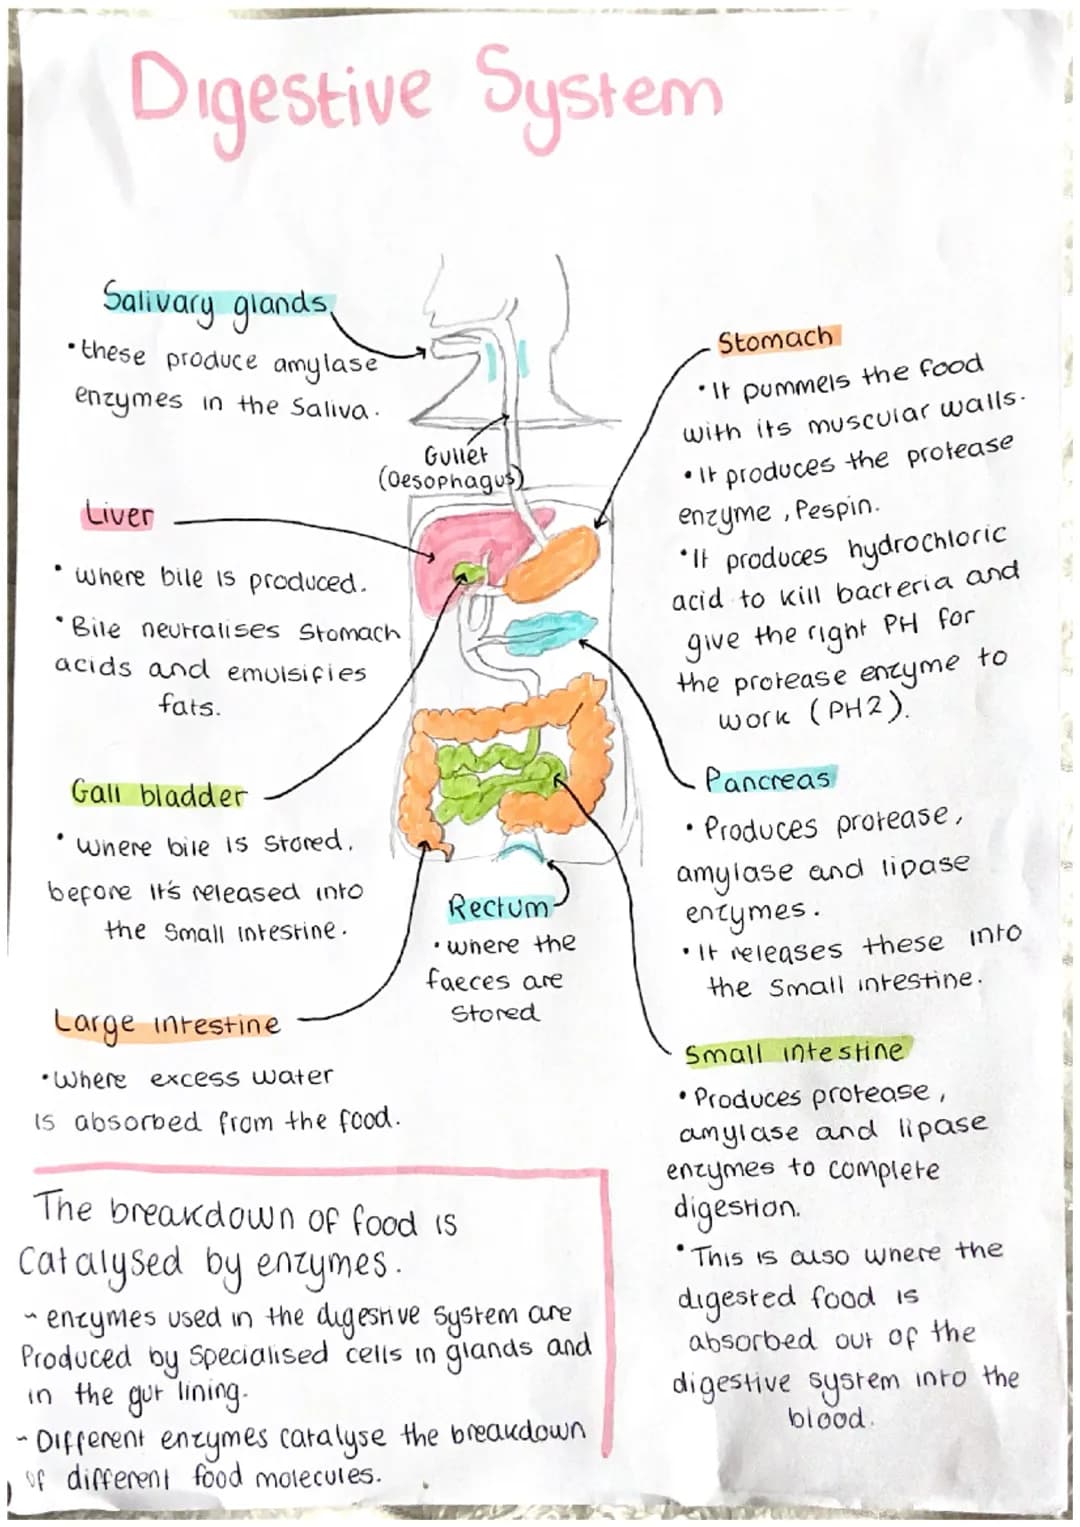 Digestive System
Salivary glands
• these produce amylase
enzymes in the saliva.
Gullet
(Oesophagus)
Liver
• where bile is produced.
• Bile neutralises Stomach
acids and emulsifies
fats.
Gall bladder
• where bile is stored,
before it's released into
the small intestine.
Large intestine
• Where excess water
is absorbed from the food.
Rectum
• where the
faeces are
Stored
Stomach
• It pummels the food
with its muscular walls.
• It produces the protease
enzyme, Pespin.
• It produces hydrochloric
acid to kill bacteria and
give the right PH for
the protease enzyme to
work (PH2).
Pancreas
• Produces protease,
amylase and lipase
enzymes.
• It releases these into
the small intestine.
Small intestine
• Produces protease,
amylase and lipase
enzymes to complete
digestion.
• This is also where the
digested food is
absorbed out of the
digestive system into the
blood.
The breakdown of food is
Catalysed by enzymes.
~ enzymes used in the digestive system are
Produced by specialised cells in glands and
in the gut lining.
~ Different enzymes catalyse the breakdown
of different food molecules.